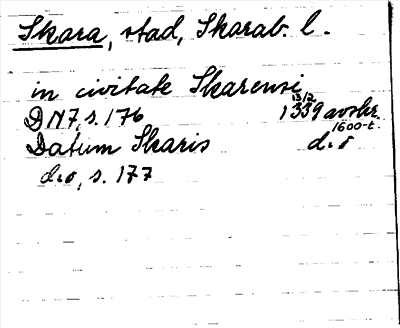 Skara, stad, Skarab. l.
in civitate Skarensi
DN 7, s. 176 13/12 1339 avskr. 1600-t.
Datum Skaris d. o
d. o, s. 177